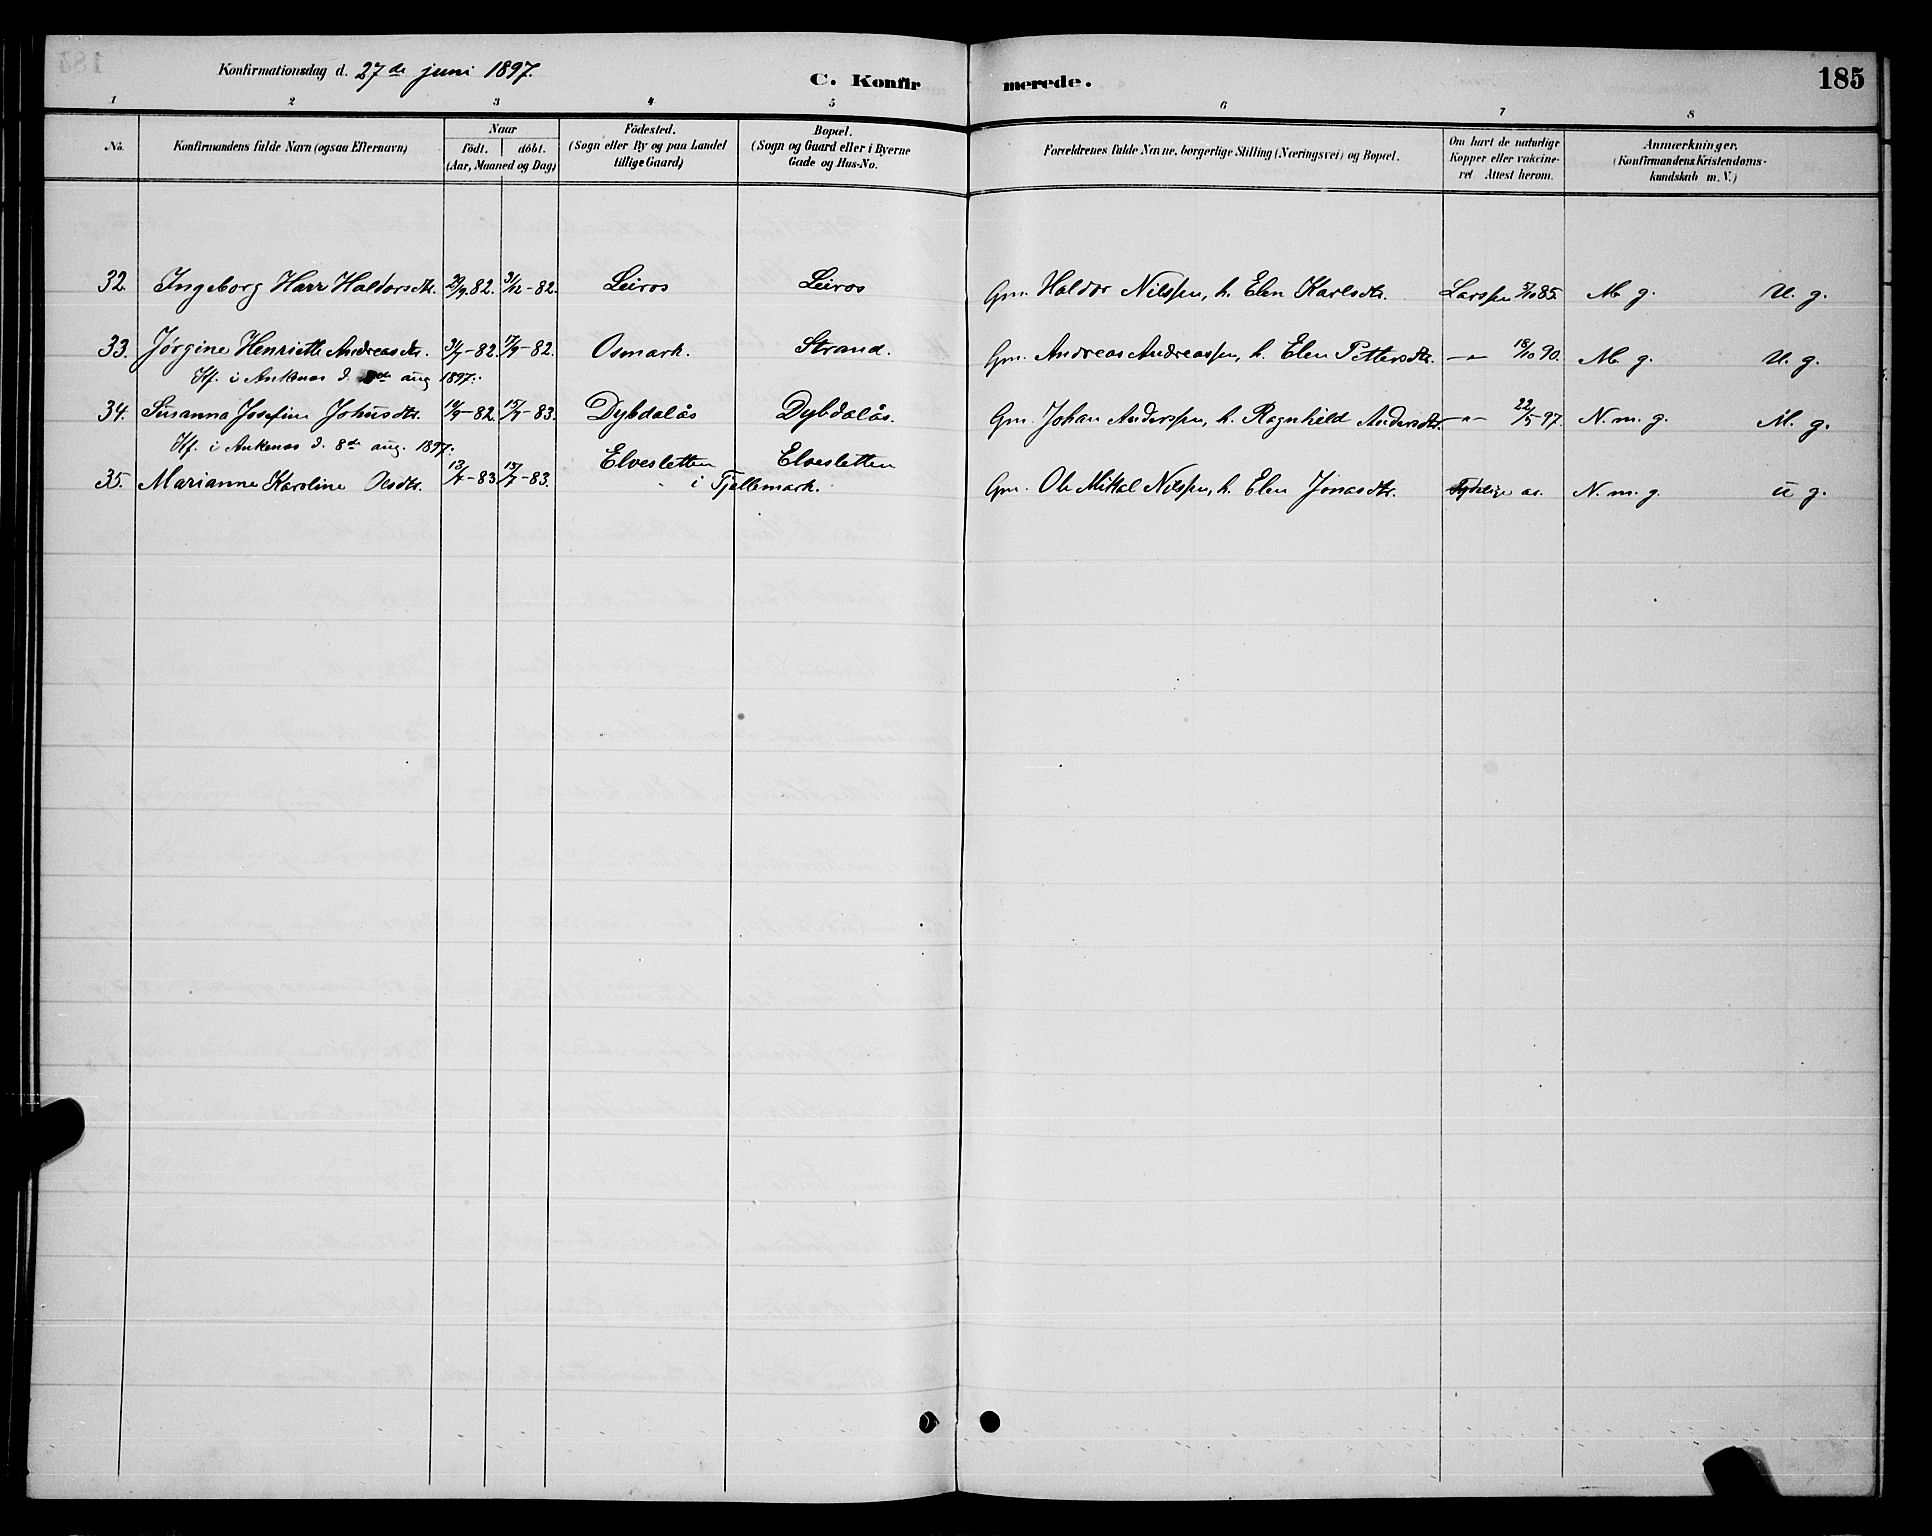 Konfirmationsdag d. 27de juni 1897.
C. Konfirmerede.
185
1 2 3 4 5 6 7 8
No.
Konfirmandens fulde Navn (ogsaa Efternavn)
Naar
födt. döbt.
(Aar, Maaned og Dag)
Födested.
(Sogn eller By og paa Landet
tillige Gaard)
Bopæl.
(Sogn og Gaard eller i Byerne
Gade og Hus-No.
Forældrenes fulde Navne, borgerlige Stilling (Næringsvei) og Bopæl.
Om havt de naturlige
Kopper eller vakcine-
ret Attest herom.
Anmærkninger.
(Konfirmandens Kristendoms-
kundskab m. V.)
32. Ingeborg Haldorsdtr. 82. 3/12-82. Leiros Leiros Gm. Haldor Nilssen, h. Elen Karlsdtr. Larssen 85. M. g. U. g.
33. Jørgine Henriette Andreasdtr. -82. 17/9-82. Osmark. Strand. Gm. Andreas Andreassen, h. Elen Pettersdtr. -"- 18/10 90. M. g. U. g.
Kf. i Ankenes d. aug 1897.
34. Susanna Josefine Johansdtr. -82. -83. Dybdalås Dybdalås. Gm. Johan Anderssen, h. Ragnhild Andersdtr. -"- 22/5-97. N. m. g. M. g.
Kf. i Ankenes d. 8de aug. 1897.
35. Marianne Karoline Olsdtr. -83 -83. Elvesletten Elvesletten
i Tjellemark. Gm. Ole Mikal Nilssen, h. Elen Jonasdtr. Tydelige ar. N. m. g. U g.